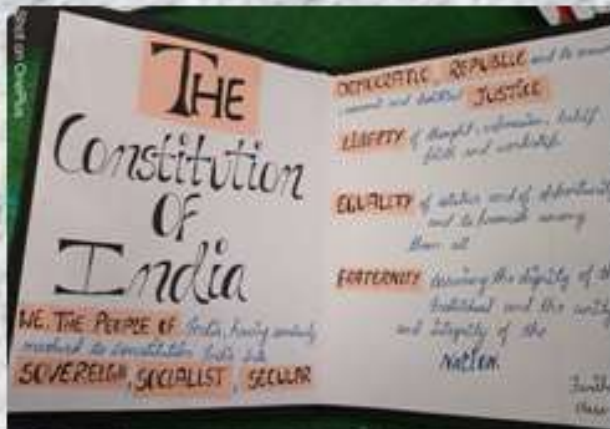 Shot on OnePlus
THE
Constitution
Of
India
WE, THE PEOPLE OF India, having
resolved to constitution India into
SOVEREIGN, SOCIALIST, SECULAR
DEMOCRATIC, REPUBLIC and to
and JUSTICE
LIBERTY of thought, expression, belief,
faith and worship
EQUALITY of status and of opportunity
and to promote among
them all
FRATERNITY assuring the dignity of the
Individual and the unity
and integrity of the
Nation